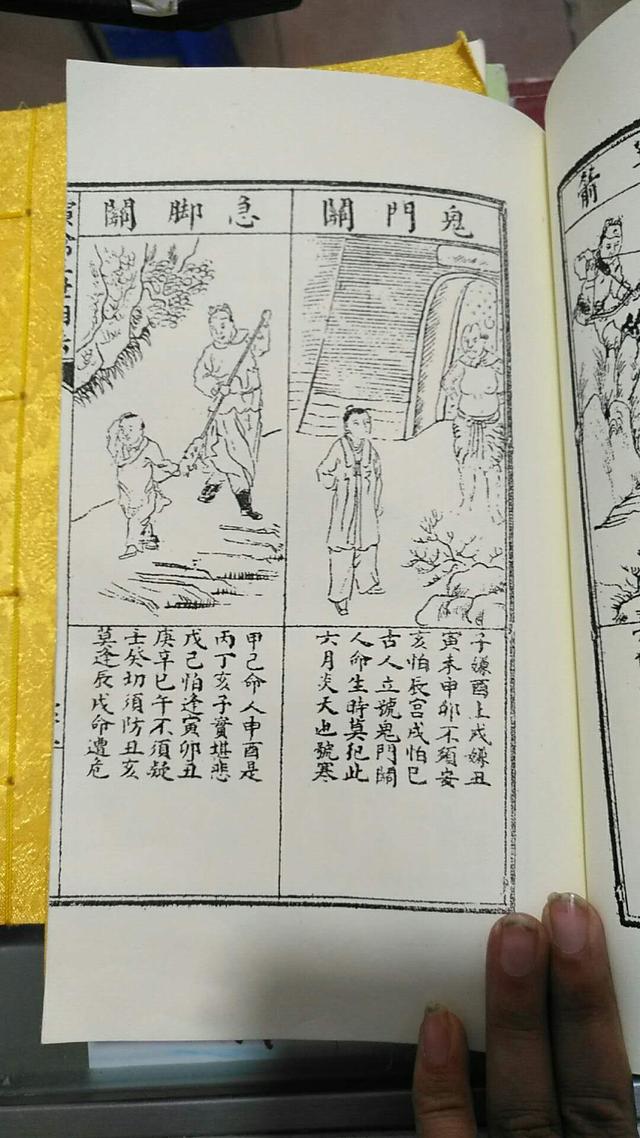 鬼門關
子嫌酉上戌嫌丑
寅未申卯不須安
亥怕辰宫戌怕巳
古人立號鬼門關
人命生時莫犯此
六月炎天也號寒
急脚關
甲己命人申酉是
丙丁亥子實堪悲
戊己怕逢寅卯丑
庚辛巳午不須疑
壬癸切須防丑亥
莫逢辰戌命遭危
箭